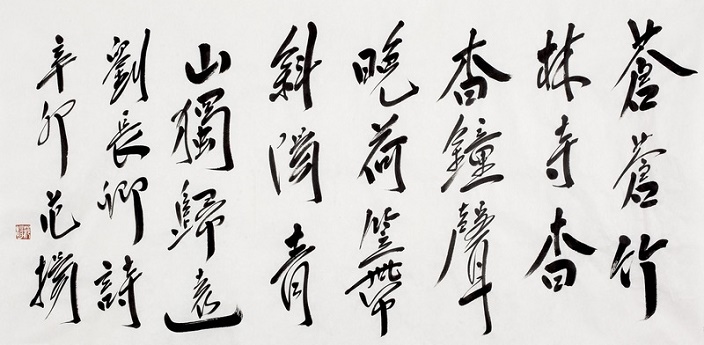 蒼蒼竹
林寺杳
杳鐘聲
晚荷笠帶
斜陽青
山獨歸遠
劉長卿詩
辛卯范